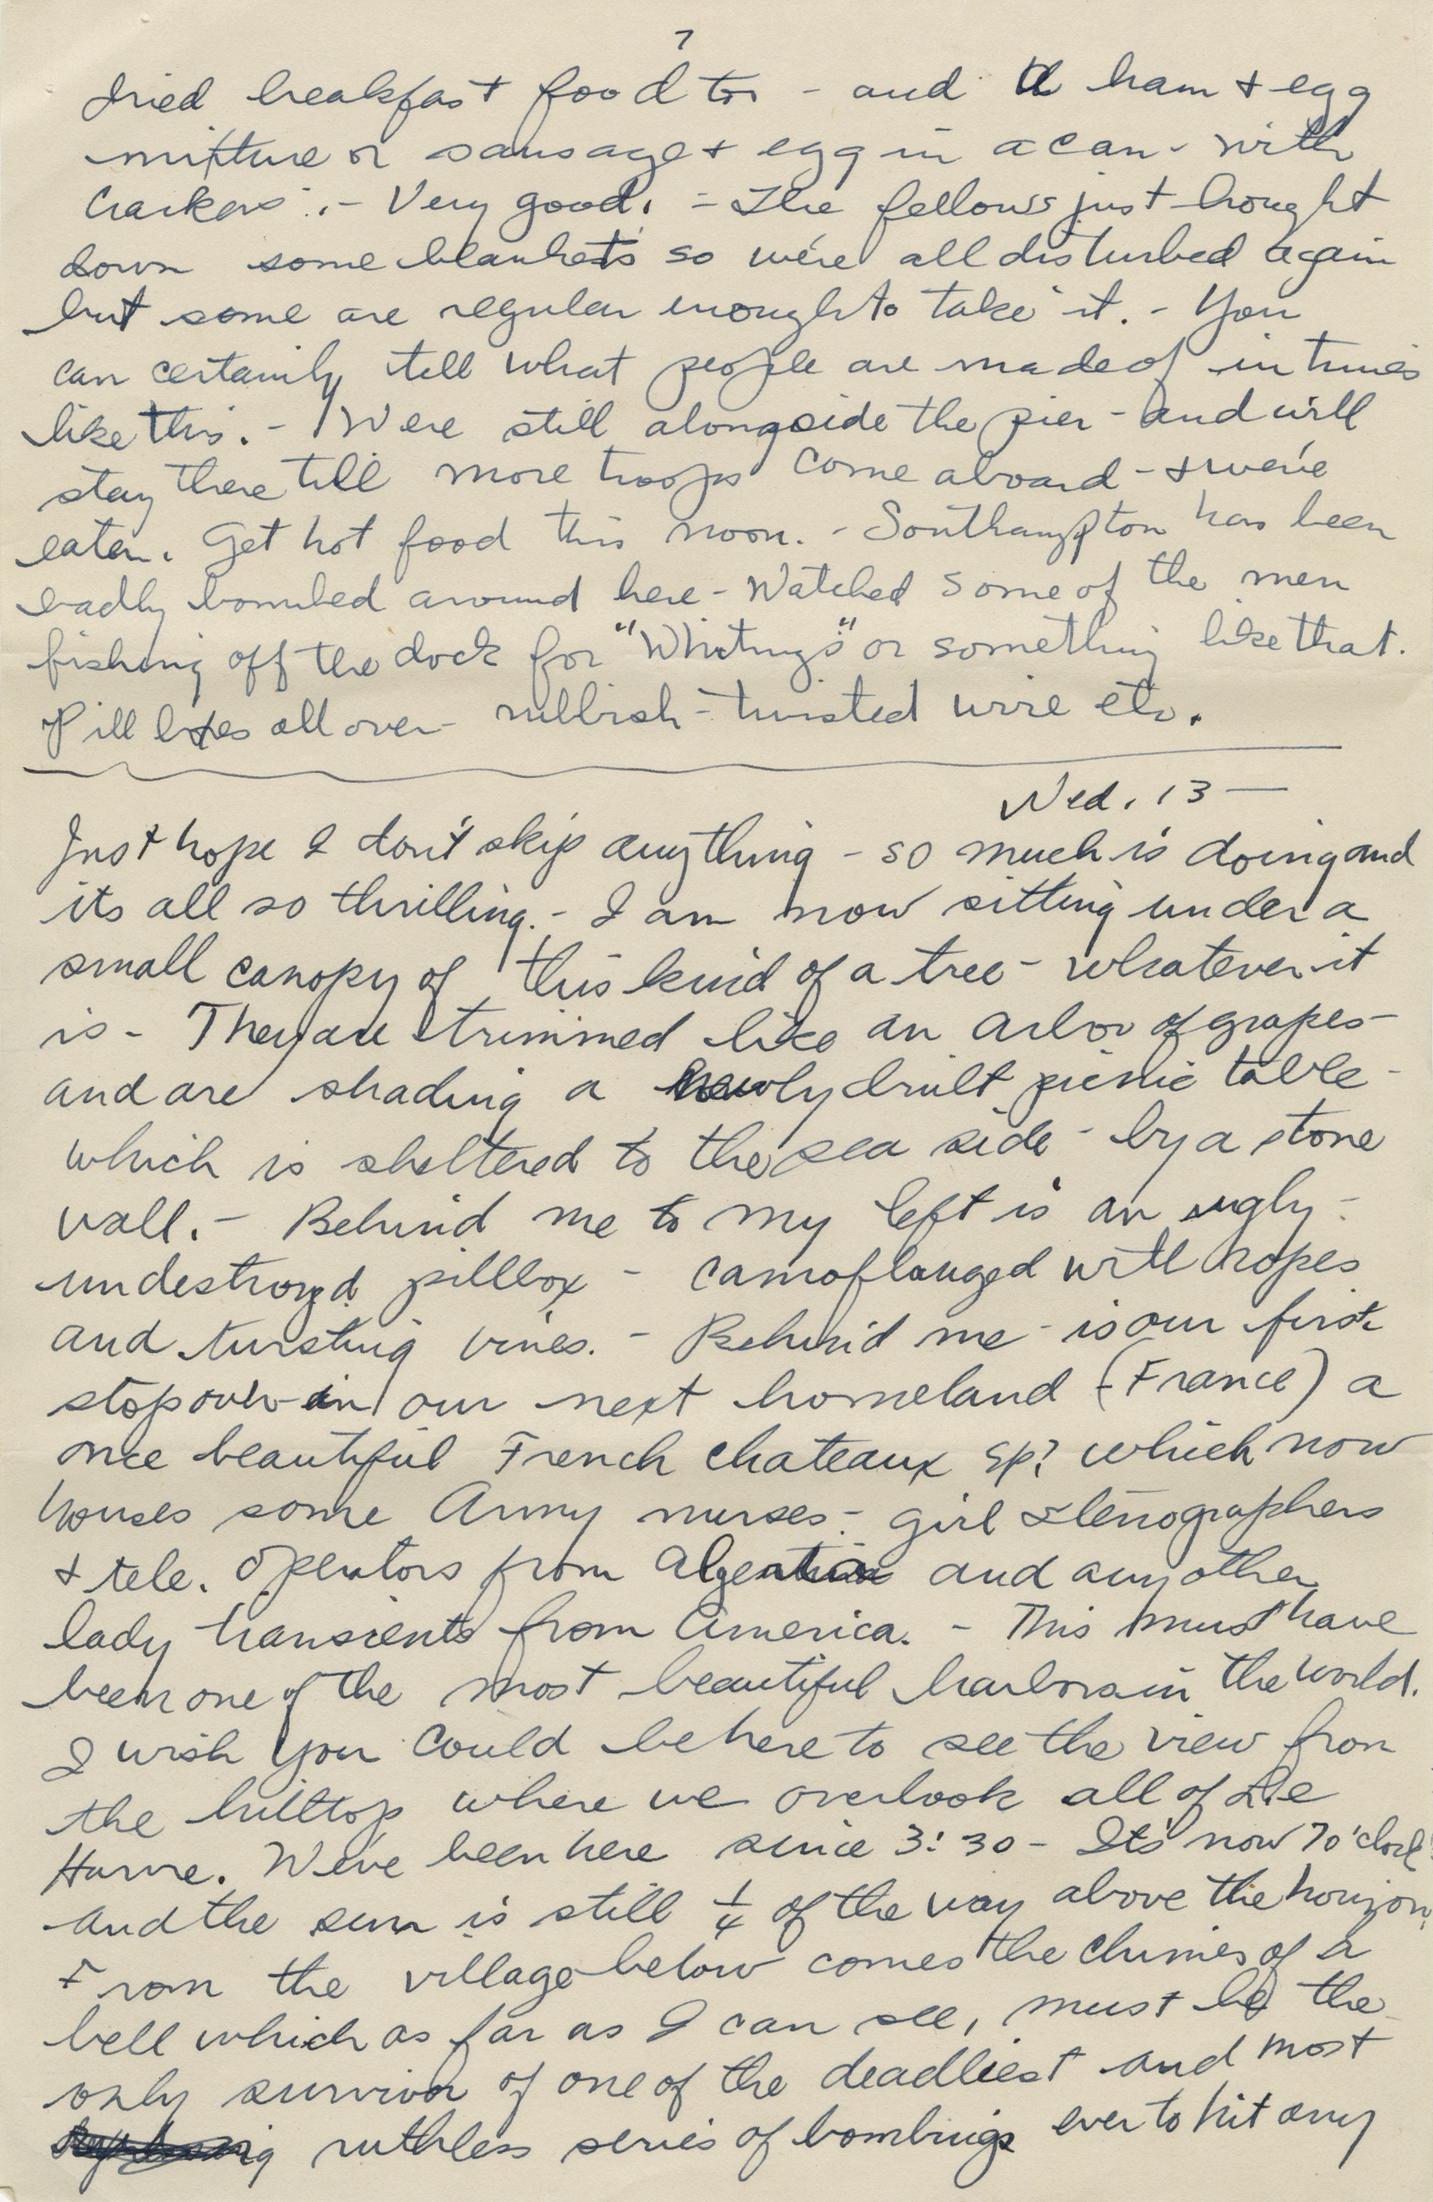 7
Dried breakfast food too - and a ham & egg
mixture or sausage & egg in a can - with
Crackers. - Very good. - The fellows just brought
down some blankets so we're all disturbed again
but some are regular enough to take it. - You
can certainly tell what people are made of in times
like this. - We're still alongside the pier - and will
stay there till more troops come aboard - & we've
eaten. Get hot food this noon. - Southampton has been
badly bombed around here - Watched some of the men
fishing off the dock for "Whitings" or something like that.
Pill boxes all over - rubbish - twisted wire etc.
Wed. 13 -
Just hope I don't skip anything - so much is doing and
its all so thrilling. - I am now sitting under a
small canopy of this kind of a tree - whatever it
is - They are trimmed like an arbor of grapes -
and are shading a newly built picnic table -
which is sheltered to the sea side - by a stone
wall. - Behind me to my left is an ugly -
undestroyed pillbox - camoflauged with ropes
and twisting vines. - Behind me - is our first
stopover in our next homeland (France) a
once beautiful French chateaux sp? which now
houses some Army nurses - girl stenographers
& tele. opeators from and any other
lady transients from America. - This must have
been one of the most beautiful harbors in the world.
I wish you could be here to see the view from
the hilltop where we overlook all of Le
Harve. We've been here since 3:30 - It's now 7 o'clock
and the sun is still 1/4 of the way above the horizon.
From the village below comes the chimes of a
bell which as far as I can see, must be the
only survivor of one of the deadliest and most
ruthless series of bombings ever to hit any